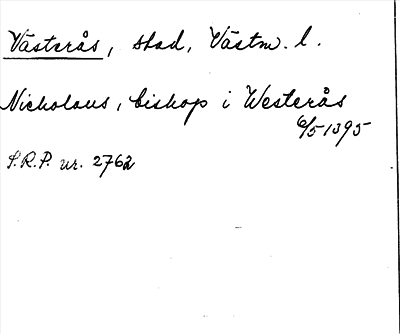 Västerås, stad, Västm. l.
Nicholaus, biskop i Westerås
6/5 1395
S.R.P. nr. 2762